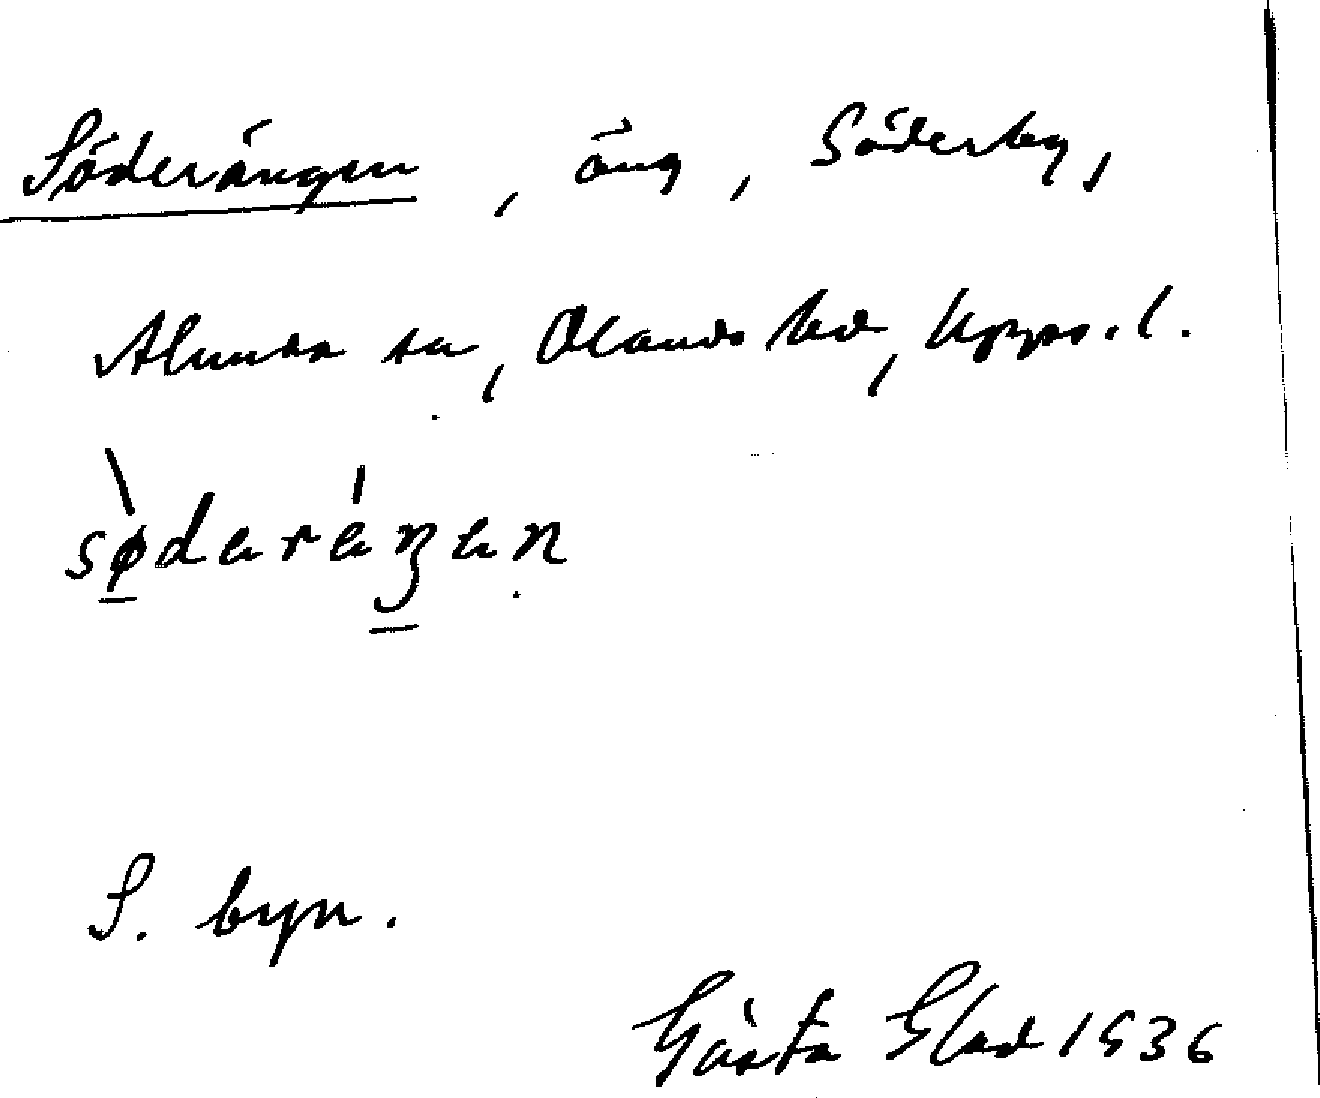 Söderängen, äng, Söderby,
Alunda sn, Olands hd, Upps. l.
S. byn.
Gösta Glad 1936